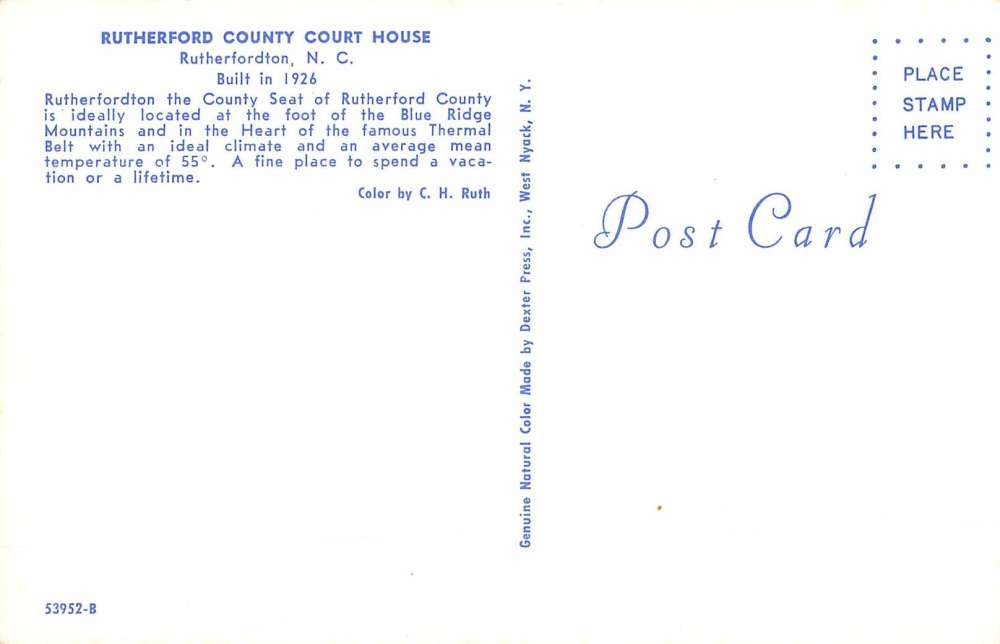 RUTHERFORD COUNTY COURT HOUSE
Rutherfordton, N. C.
Built in 1926
Rutherfordton the County Seat of Rutherford County
is ideally located at the foot of the Blue Ridge
Mountains and in the Heart of the famous Thermal
Belt with an ideal climate and an average mean
temperature of 55°. A fine place to spend a vaca-
tion or a lifetime.
Color by C. H. Ruth
53952-B
Genuine Natural Color Made by Dexter Press, Inc., West Nyack, N. Y.
PLACE
STAMP
HERE
Post Card